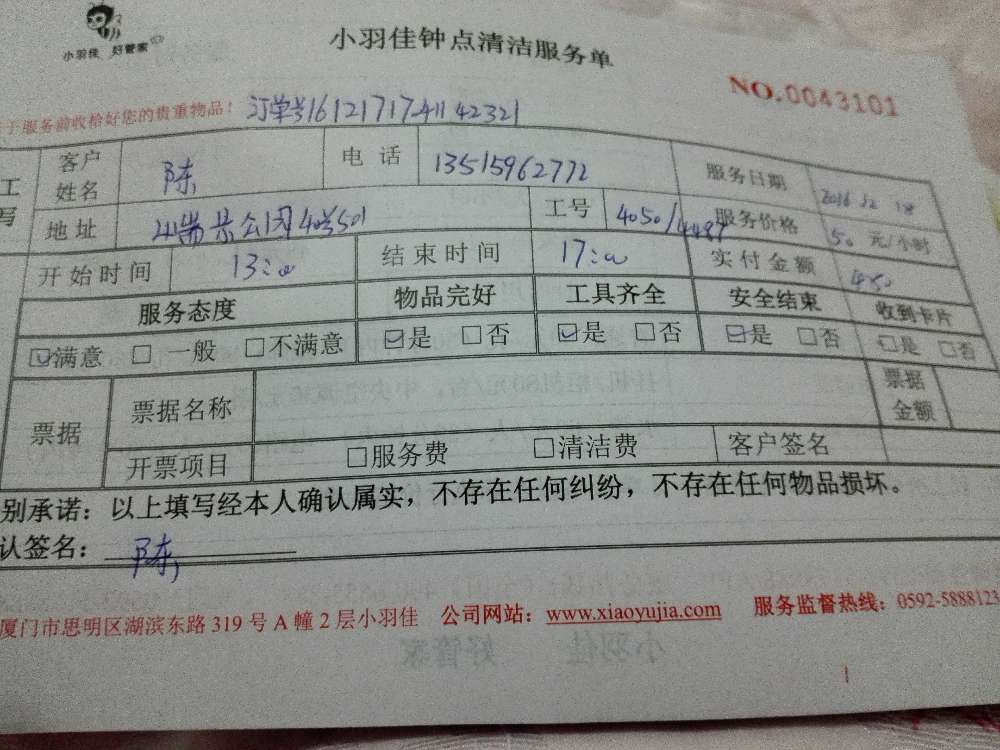 小羽佳 好管家
小羽佳钟点清洁服务单
NO.0043101
于服务前收检好您的贵重物品！ 订单号16121717411 42321
工 客户姓名 陈 电话 13515962772 服务日期 2016 12 18
写 地址 瑞景公园40号501 工号 4050/4487 服务价格 50 元/小时
开始时间 13:00 结束时间 17:00 实付金额 450
服务态度 物品完好 工具齐全 安全结束 收到卡片
☑满意 □一般 □不满意 ☑是 □否 ☑是 □否 ☑是 □否 □是 □否
票据 票据名称 票据金额
开票项目 □服务费 □清洁费 客户签名
别承诺：以上填写经本人确认属实，不存在任何纠纷，不存在任何物品损坏。
认签名： 陈
厦门市思明区湖滨东路 319 号 A 幢 2 层小羽佳 公司网站：www.xiaoyujia.com 服务监督热线：0592-5888123
小羽佳 好管家